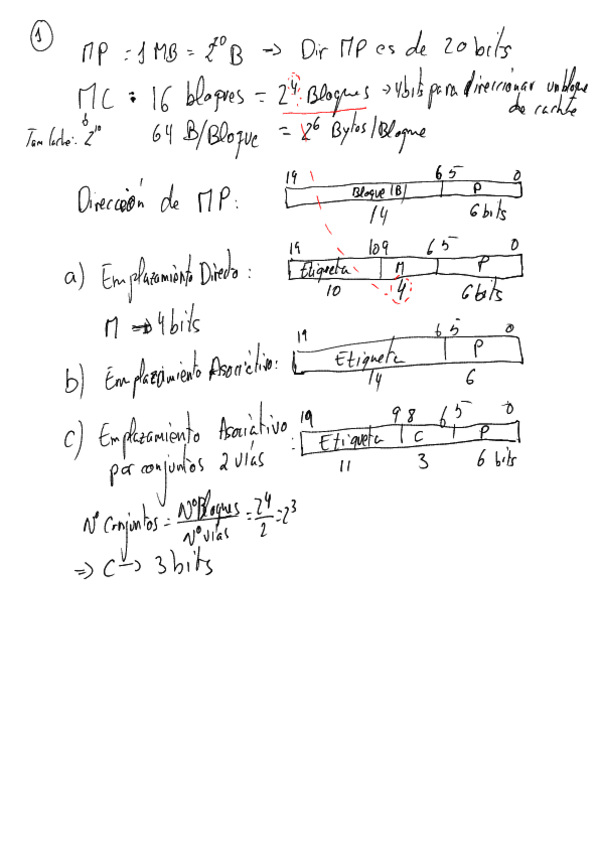 1
MP = 1 MB = 2^20 B → Dir MP es de 20 bits
MC : 16 bloques = 2^4 Bloques → 4bits para direccionar un bloque de cache
Tam cache: 2^10
64 B/Bloque = 2^6 Bytes/Bloque
19 6 5 0
Dirección de MP: Bloque (B) P
14 6 bits
19 10 9 6 5 0
a) Emplazamiento Directo: Etiqueta M P
10 4 6 bits
M → 4 bits
19 6 5 0
b) Emplazamiento Asociativo: Etiqueta P
14 6
19 9 8 6 5 0
c) Emplazamiento Asociativo por conjuntos 2 vías : Etiqueta C P
11 3 6 bits
Nº Conjuntos = Nº Bloques / Nº vías = 2^4 / 2 = 2^3
⇒ C → 3 bits